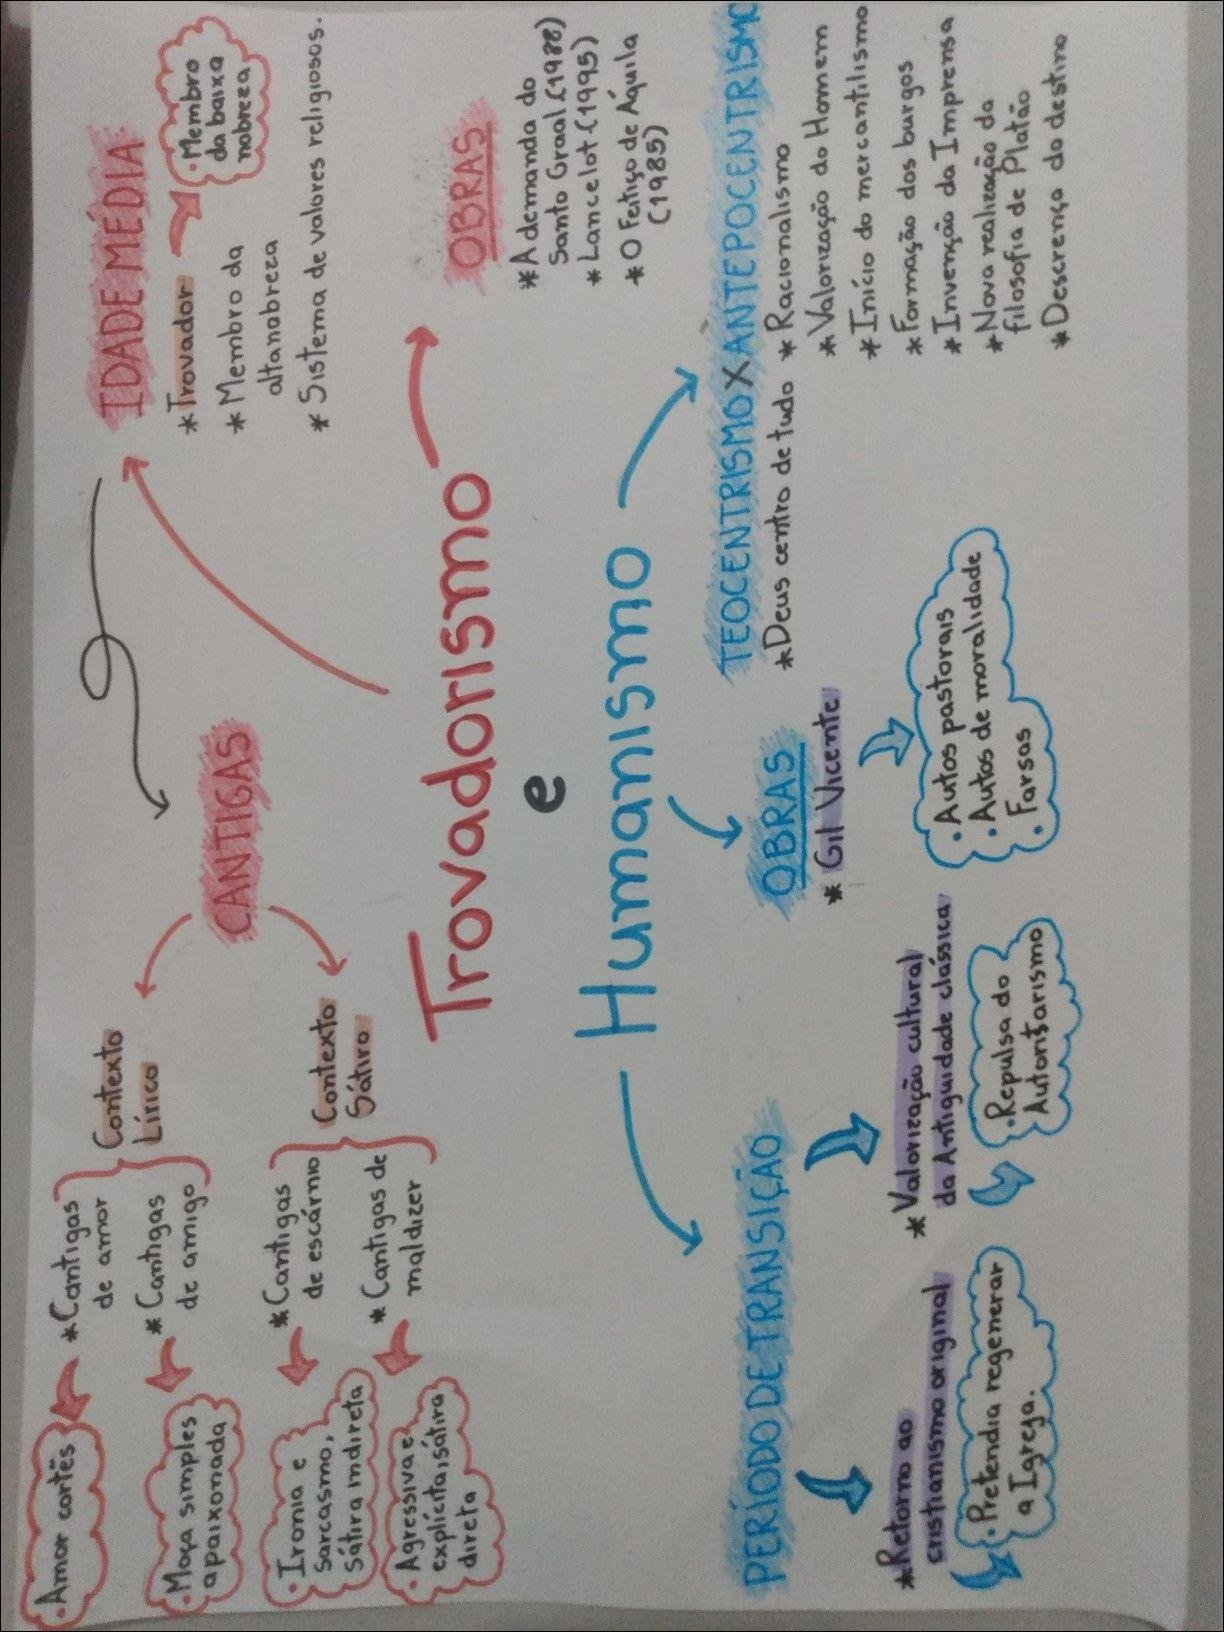 Trovadorismo
e
Humanismo
IDADE MÉDIA
*Trovador
• Membro
da baixa
nobreza
*Membro da
altanobreza
*Sistema de valores religiosos.
CANTIGAS
Contexto
Lírico
*Cantigas
de amor
•Amor cortês
*Cantigas
de amigo
•Moça simples
apaixonada
Contexto
Sátiro
*Cantigas
de escárnio
•Ironia e
sarcasmo,
sátira indireta
*Cantigas de
maldizer
•Agressiva e
explícita, sátira
direta
OBRAS
*A demanda do
Santo Graal (1988)
*Lancelot (1995)
*O Feitiço de Áquila
(1985)
PERÍODO DE TRANSIÇÃO
*Retorno ao
cristianismo original
•Pretendia regenerar
a Igreja.
*Valorização cultural
da Antiguidade clássica
•Repulsa do
Autoritarismo
OBRAS
*Gil Vicente
•Autos pastorais
•Autos de moralidade
•Farsas
TEOCENTRISMO X ANTEPOCENTRISMO
*Deus centro de tudo
*Racionalismo
*Valorização do Homem
*Início do mercantilismo
*Formação dos burgos
*Invenção da Imprensa
*Nova realização da
filosofia de Platão
*Descrença do destino